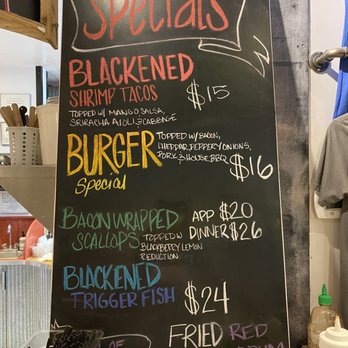 Specials
BLACKENED
SHRIMP TACOS
$15
TOPPED W/ MANGO SALSA,
SRIRACHA AIOLI & CABBAGE
BURGER
Special
TOPPED W/ BACON,
CHEDDAR, PEPPERY ONIONS,
PORK & HOUSE BBQ
$16
BACON WRAPPED
SCALLOPS
TOPPED W
BLACKBERRY LEMON
REDUCTION
APP $20
DINNER $26
BLACKENED
TRIGGER FISH
$24
OF
FRIED RED